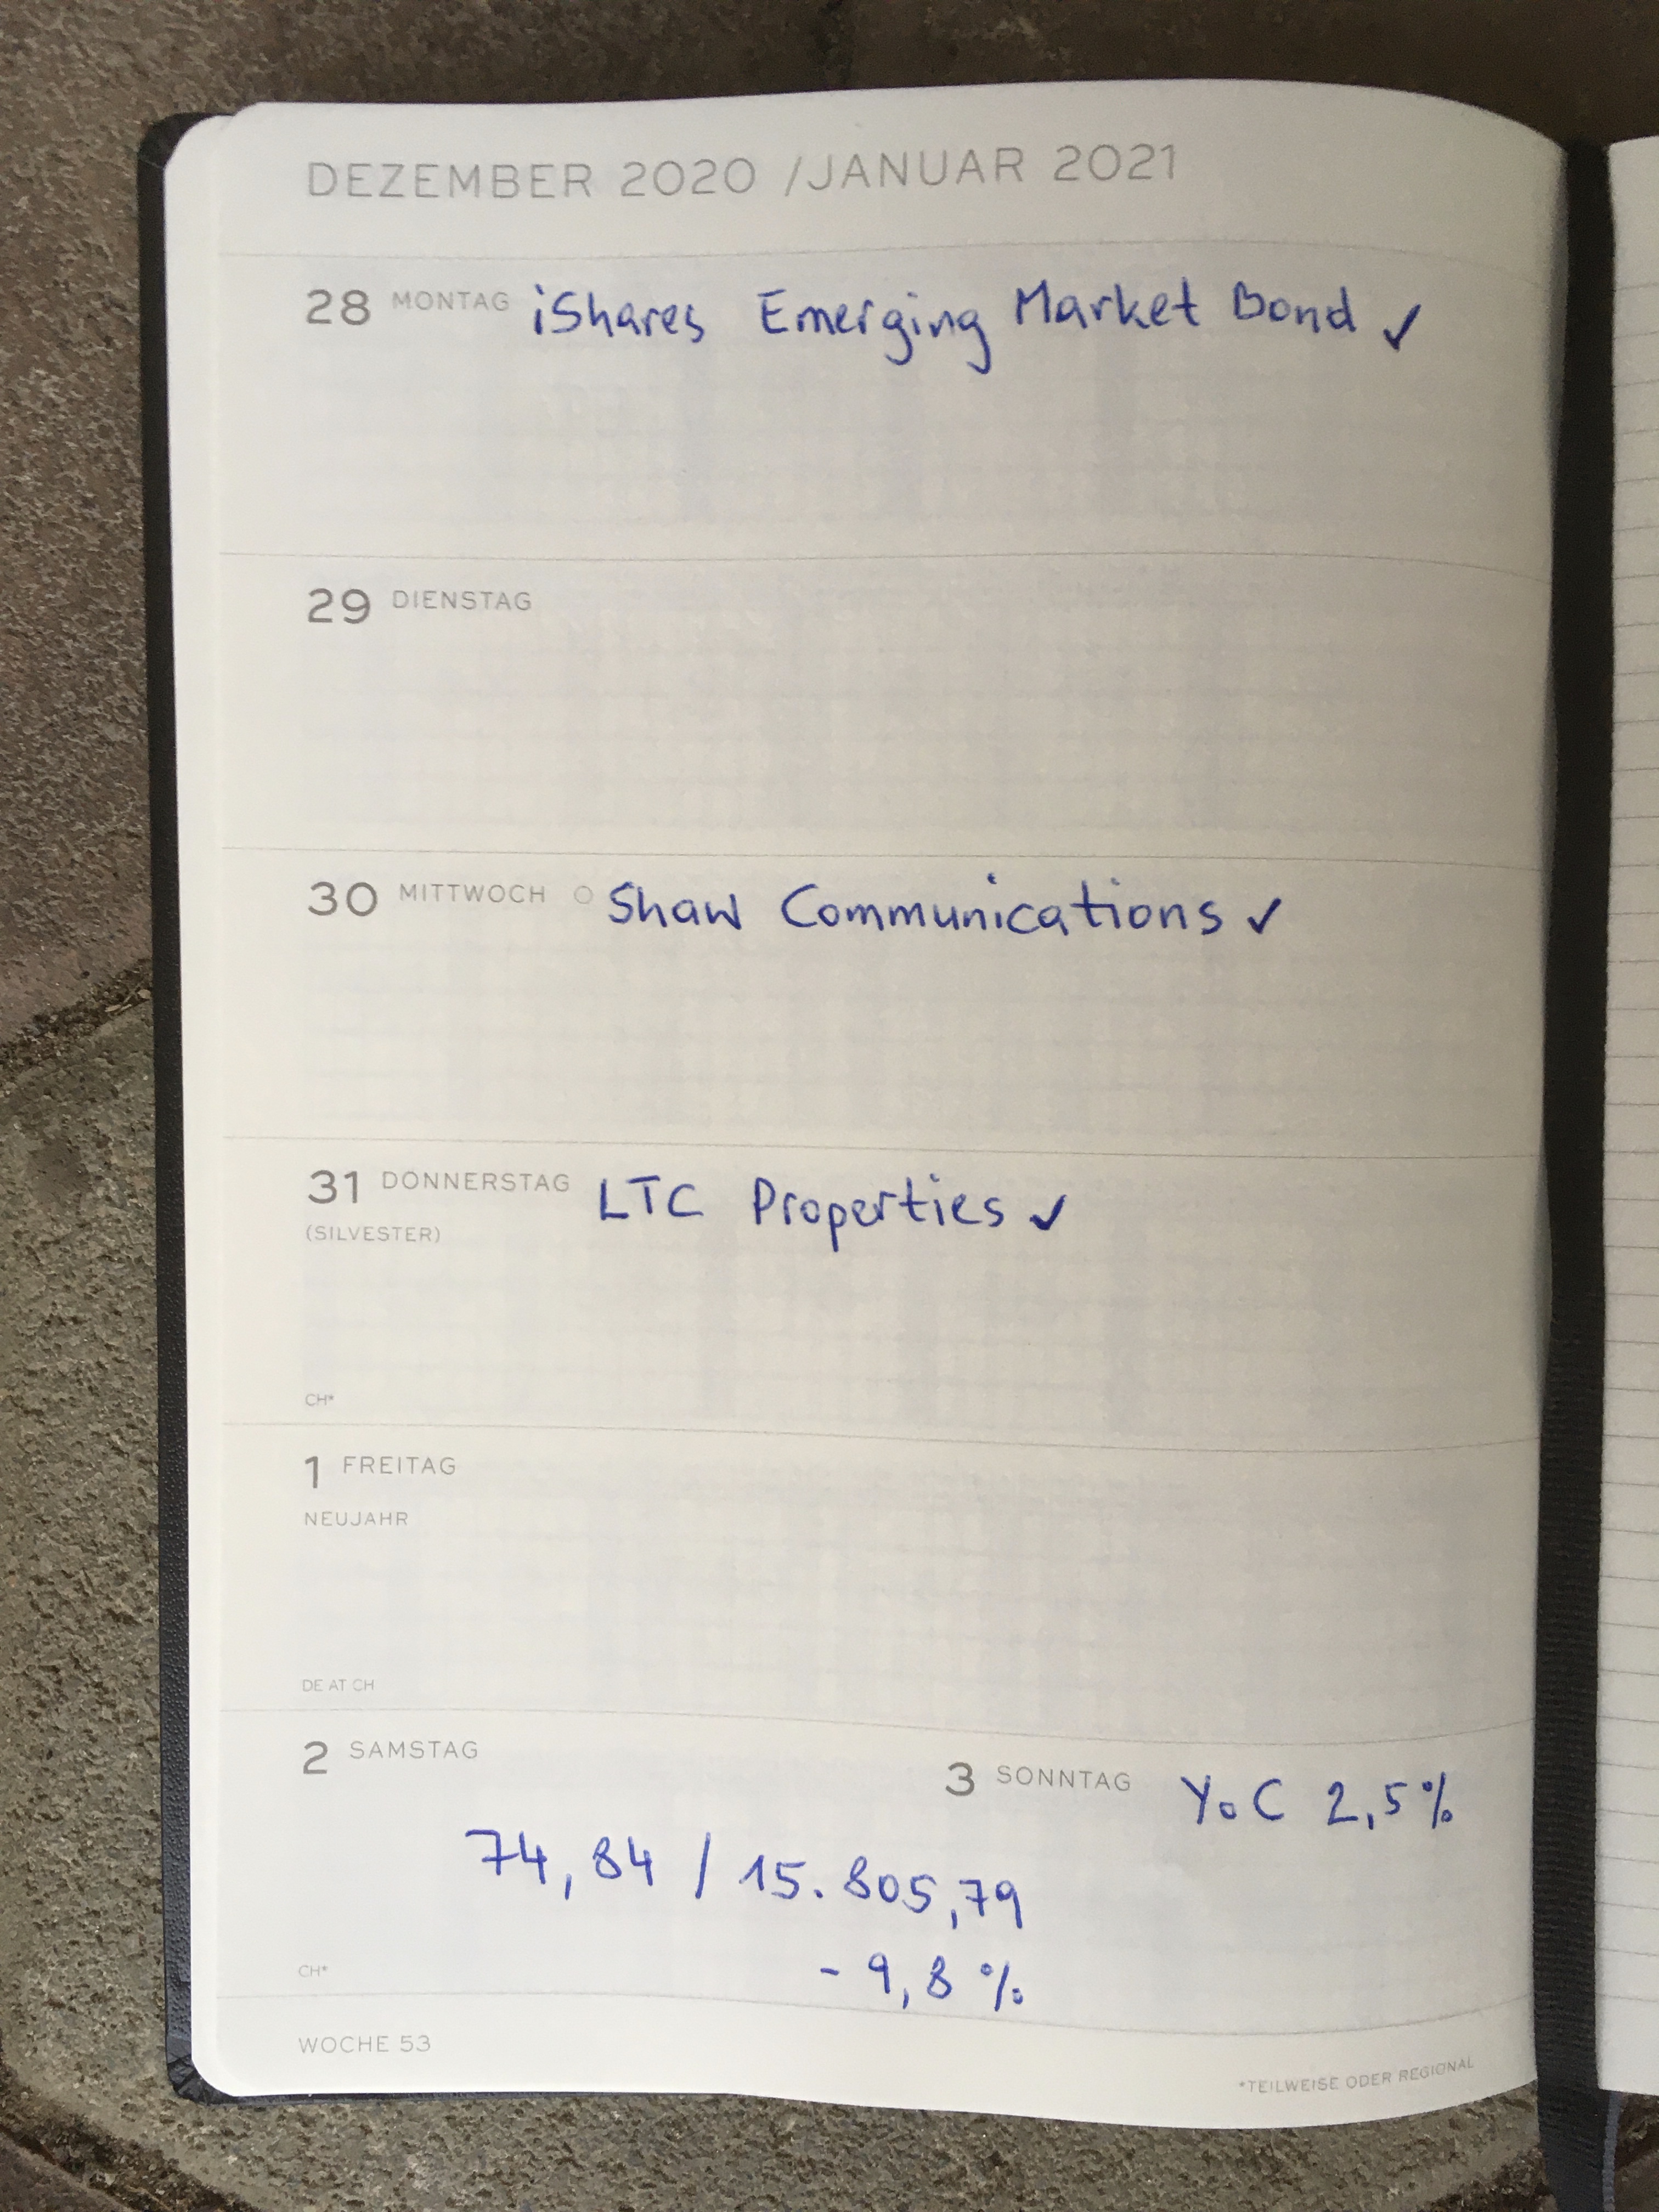 DEZEMBER 2020 /JANUAR 2021
28 MONTAG iShares Emerging Market Bond ✓
29 DIENSTAG
30 MITTWOCH ○ Shaw Communications ✓
31 DONNERSTAG LTC Properties ✓
(SILVESTER)
CH*
1 FREITAG
NEUJAHR
DE AT CH
2 SAMSTAG
74,84 / 15.805,79
- 9,8 %
CH*
3 SONNTAG YoC 2,5%
WOCHE 53
*TEILWEISE ODER REGIONAL